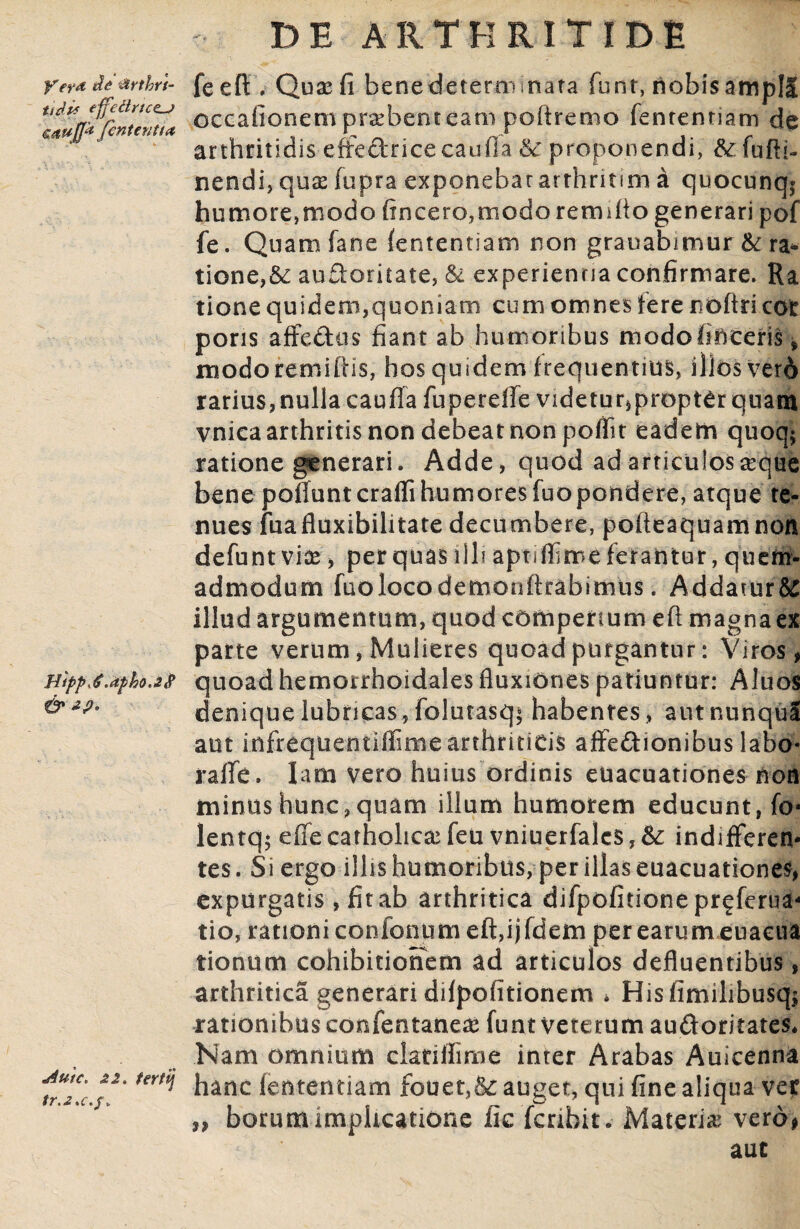 DE ARTHRITIDE
Vera de Arthri-
tidis effectrice
causſa ſententia
ſe eſt. Quæ ſi bene determinata ſunt, nobis amplã
occaſionem præbent eam poſtremo ſententiam de
arthritidis effectrice cauſſa & proponendi, & ſuſti-
nendi, quæ ſupra exponebat arthritim à quocunq;
humore, modo ſincero, modo remiſto generari poſ
ſe. Quam ſane ſententiam non grauabimur & ra-
tione, & auctoritate, & experientia confirmare. Ra
tione quidem, quoniam cum omnes fere noſtri cor
poris affectus fiant ab humoribus modo ſinceris,
modo remiſtis, hos quidem frequentius, illos verò
rarius, nulla cauſſa ſupereſſe videtur, propter quam
vnica arthritis non debeat non poſſit eadem quoq;
ratione generari. Adde, quod ad articulos æque
bene poſſunt craſſi humores ſuo pondere, atque te-
nues ſua fluxibilitate decumbere, poſteaquam non
deſunt viæ, per quas illi aptiſſime ferantur, quem-
admodum ſuo loco demonſtrabimus. Addatur &
illud argumentum, quod compertum eſt magna ex
parte verum, Mulieres quoad purgantur: Viros,
Hipp.6.apho.28
& 29.
quoad hemorrhoidales fluxiones patiuntur: Aluos
denique lubricas, ſolutasq; habentes, aut nunquã
aut infrequentiſſime arthriticis affectionibus labo-
raſſe. Iam vero huius ordinis euacuationes non
minus hunc, quam illum humorem educunt, ſo-
lentq; eſſe catholicæ ſeu vniuerſales, & indifferen-
tes. Si ergo illis humoribus, per illas euacuationes,
expurgatis, fit ab arthritica diſpoſitione pręſerua-
tio, rationi conſonum eſt, ijſdem per earum euacua
tionum cohibitionem ad articulos defluentibus,
arthriticã generari diſpoſitionem. His ſimilibusq;
rationibus conſentaneæ ſunt veterum auctoritates.
Nam omnium clariſſime inter Arabas Auicenna
Auic. 22. tertij
tr.2.c.5.
hanc ſententiam fouet, & auget, qui ſine aliqua ver
„ borum implicatione ſic ſcribit. Materiæ verò,
aut